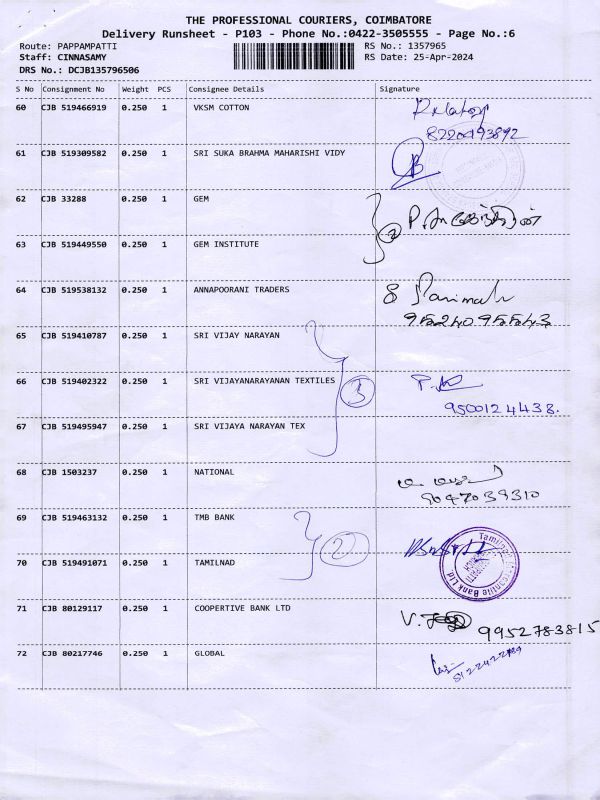 THE PROFESSIONAL COURIERS, COIMBATORE
Delivery Runsheet - P103 - Phone No.:0422-3505555 - Page No.:6
Route: PAPPAMPATTI
RS No.: 1357965
Staff: CINNASAMY
RS Date: 25-Apr-2024
DRS No.: DCJB135796506
S No Consignment No Weight PCS Consignee Details Signature
60 CJB 519466919 0.250 1 VKSM COTTON
8220493892
61 CJB 519309582 0.250 1 SRI SUKA BRAHMA MAHARISHI VIDY
62 CJB 33288 0.250 1 GEM
2
63 CJB 519449550 0.250 1 GEM INSTITUTE
64 CJB 519538132 0.250 1 ANNAPOORANI TRADERS
9524095543
65 CJB 519410787 0.250 1 SRI VIJAY NARAYAN
66 CJB 519402322 0.250 1 SRI VIJAYANARAYANAN TEXTILES 3
9500124438.
67 CJB 519495947 0.250 1 SRI VIJAYA NARAYAN TEX
68 CJB 1503237 0.250 1 NATIONAL
9047039310
69 CJB 519463132 0.250 1 TMB BANK
2
70 CJB 519491071 0.250 1 TAMILNAD
Tamilnad Mercantile Bank Ltd.
71 CJB 80129117 0.250 1 COOPERTIVE BANK LTD
9952783815
72 CJB 80217746 0.250 1 GLOBAL